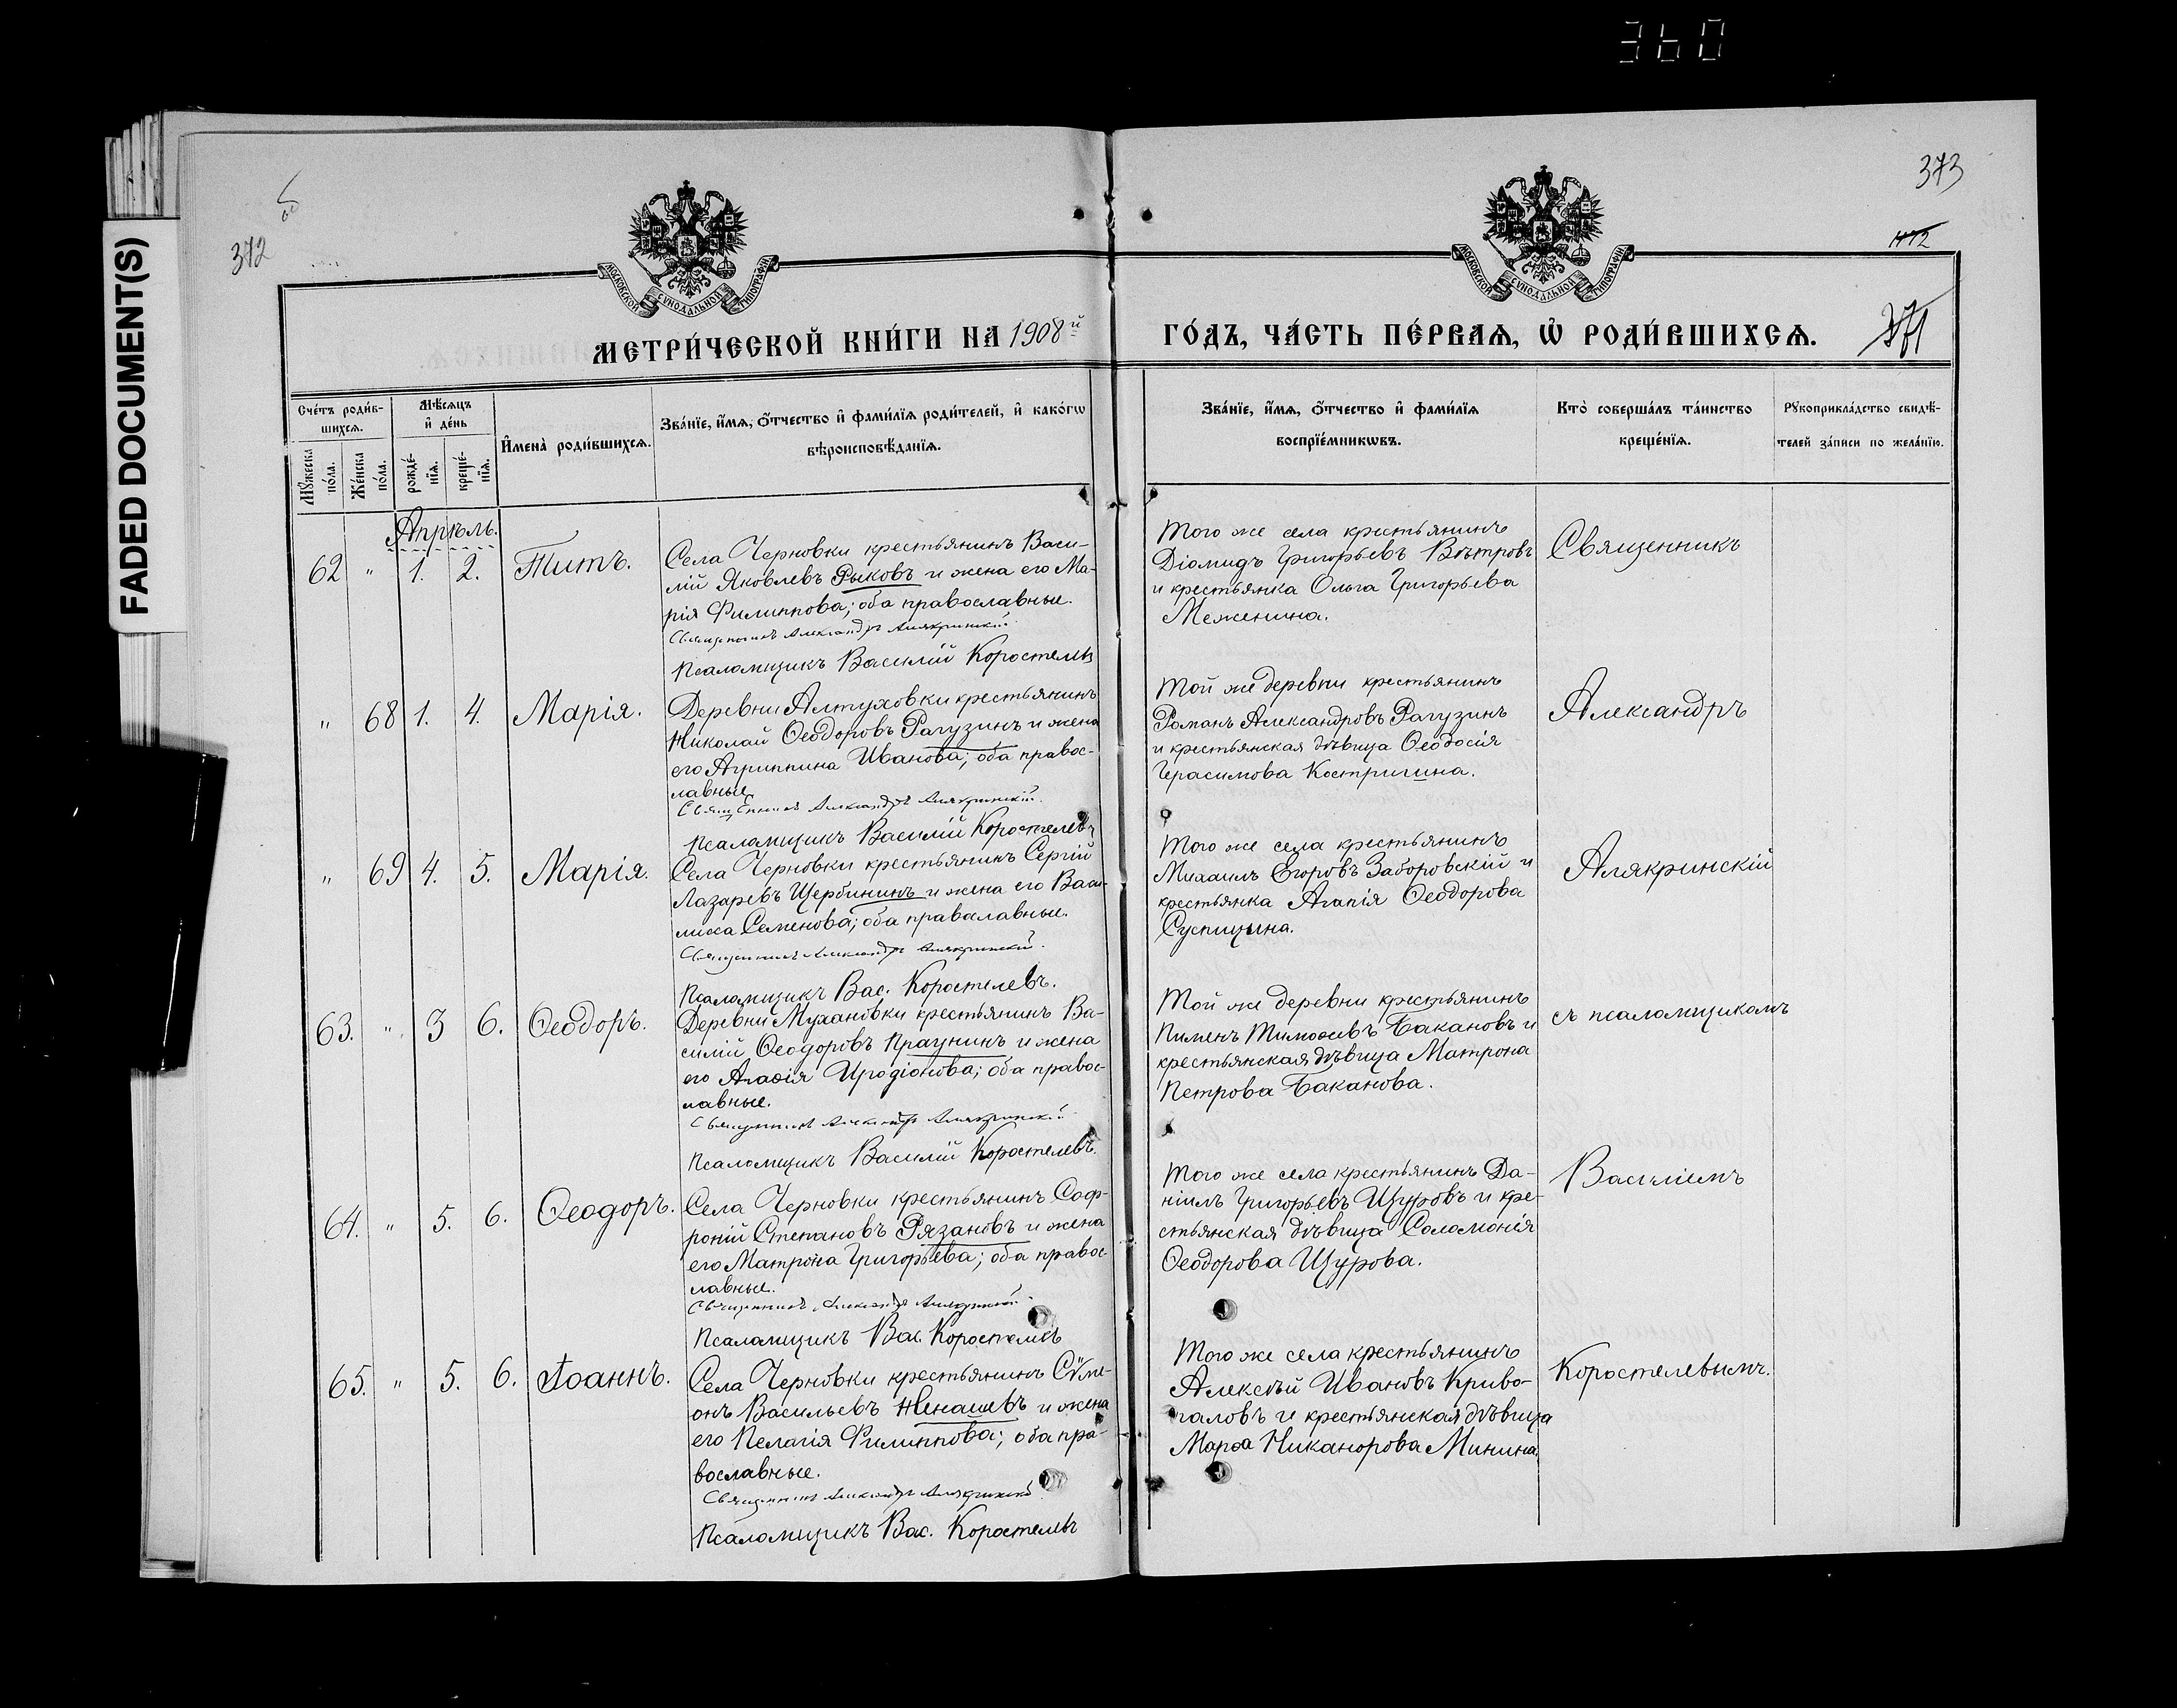 360
FADED DOCUMENT(S)
372
373
МОСКОВСКОЙ СѴНОДАЛЬНОЙ ТИПОГРАФІИ
МОСКОВСКОЙ СѴНОДАЛЬНОЙ ТИПОГРАФІИ
МЕТРИ́ЧЕСКОЙ КНИ́ГИ НА 1908й
ГО́ДЪ, ЧА́СТЬ ПЕ́РВАѦ, Ѡ҆ РОДИ́ВШИХСѦ.
371
Сче́тъ роди́в-
шихсѧ.
Мѣ́сѧцъ
и҆ де́нь
Мꙋ́жеска
по́ла.
Же́нска
по́ла.
рожде́-
нїѧ.
креще́-
нїѧ.
И҆мена̀ роди́вшихсѧ.
Зва́нїе, и҆́мѧ, ѻ҆́тчество и҆ фами́лїѧ роди́телей, и҆ како́гѡ
вѣроисповѣ́данїѧ.
Зва́нїе, и҆́мѧ, ѻ҆́тчество и҆ фами́лїѧ
воспрїе́мникѡвъ.
Кто̀ соверша́лъ та́инство
креще́нїѧ.
Рꙋкоприкла́дство свидѣ́-
телей за́писи по жела́нїю.
Апрѣль.
62 " 1. 2. Титъ.
Села Черновки крестьянинъ Васи-
лій Яковлевъ Рыковъ и жена его Ма-
рія Филиппова; оба православные.
Священникъ Александръ Алякринскій.
Псаломщикъ Василій Коростелевъ
Того же села крестьянинъ
Діомидъ Григорьевъ Вѣтровъ
и крестьянка Ольга Григорьева
Меженина.
Священникъ
" 68 1. 4. Марія.
Деревни Алтуховки крестьянинъ
Николай Ѳеодоровъ Рагузинъ и жена
его Агриппина Иванова; оба правос-
лавные
Священникъ Александръ Алякринскій.
Псаломщикъ Василій Коростелевъ
Той же деревни крестьянинъ
Романъ Александровъ Рагузинъ
и крестьянская дѣвица Ѳеодосія
Герасимова Костригина.
Александръ
" 69 4. 5. Марія.
Села Черновки крестьянинъ Сергій
Лазаревъ Щербининъ и жена его Васи-
лисса Семенова; оба православные.
Священникъ Александръ Алякринскій.
Псаломщикъ Вас. Коростелевъ.
Того же села крестьянинъ
Михаилъ Егоровъ Заборовскій и
крестьянка Агапія Ѳеодорова
Суспицына.
Алякринскій
63. " 3 6. Ѳеодоръ.
Деревни Мухановки крестьянинъ Ва-
силій Ѳеодоровъ Праунинъ и жена
его Агаѳія Иродіонова; оба правос-
лавные.
Священникъ Александръ Алякринскій
Псаломщикъ Василій Коростелевъ.
Той же деревни крестьянинъ
Пименъ Тимоѳеевъ Бакановъ и
крестьянская дѣвица Матрона
Петрова Баканова.
съ псаломщикомъ
64. " 5. 6. Ѳеодоръ.
Села Черновки крестьянинъ Соф-
роній Степановъ Рязановъ и жена
его Матрона Григорьева; оба правос
лавные.
Священникъ Александръ Алякринскій.
Псаломщикъ Вас. Коростелевъ
Того же села крестьянинъ Да-
ніилъ Григорьевъ Щуровъ и кре-
стьянская дѣвица Соломонія
Ѳеодорова Щурова.
Василіемъ
65. " 5. 6. Іоаннъ.
Села Черновки крестьянинъ Сѵме-
онъ Васильевъ Ненашевъ и жена
его Пелагія Филиппова; оба пра-
вославные.
Священникъ Александръ Алякринскій
Псаломщикъ Вас. Коростелевъ
Того же села крестьянинъ
Алексѣй Ивановъ Криво-
галовъ и крестьянская дѣвица
Марѳа Никанорова Минина.
Коростелевымъ.